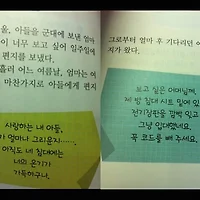 울, 아들을 군대에 보낸 엄마
이 너무 보고 싶어 일주일에
편지를 보냈다.
흘러 어느 여름날, 엄마는 여
마찬가지로 아들에게 편지
사랑하는 내 아들,
가 얼마나 그리운지……,
아직도 네 침대에는
너의 온기가
가득하구나.
그로부터 얼마 후 기다리던 아
지가 왔다.
보고 싶은 어머님께.
제 방 침대 시트 밑에 있
전기장판을 깜박 잊고
그냥 입대했네요.
꼭 코드를 빼 주세요.